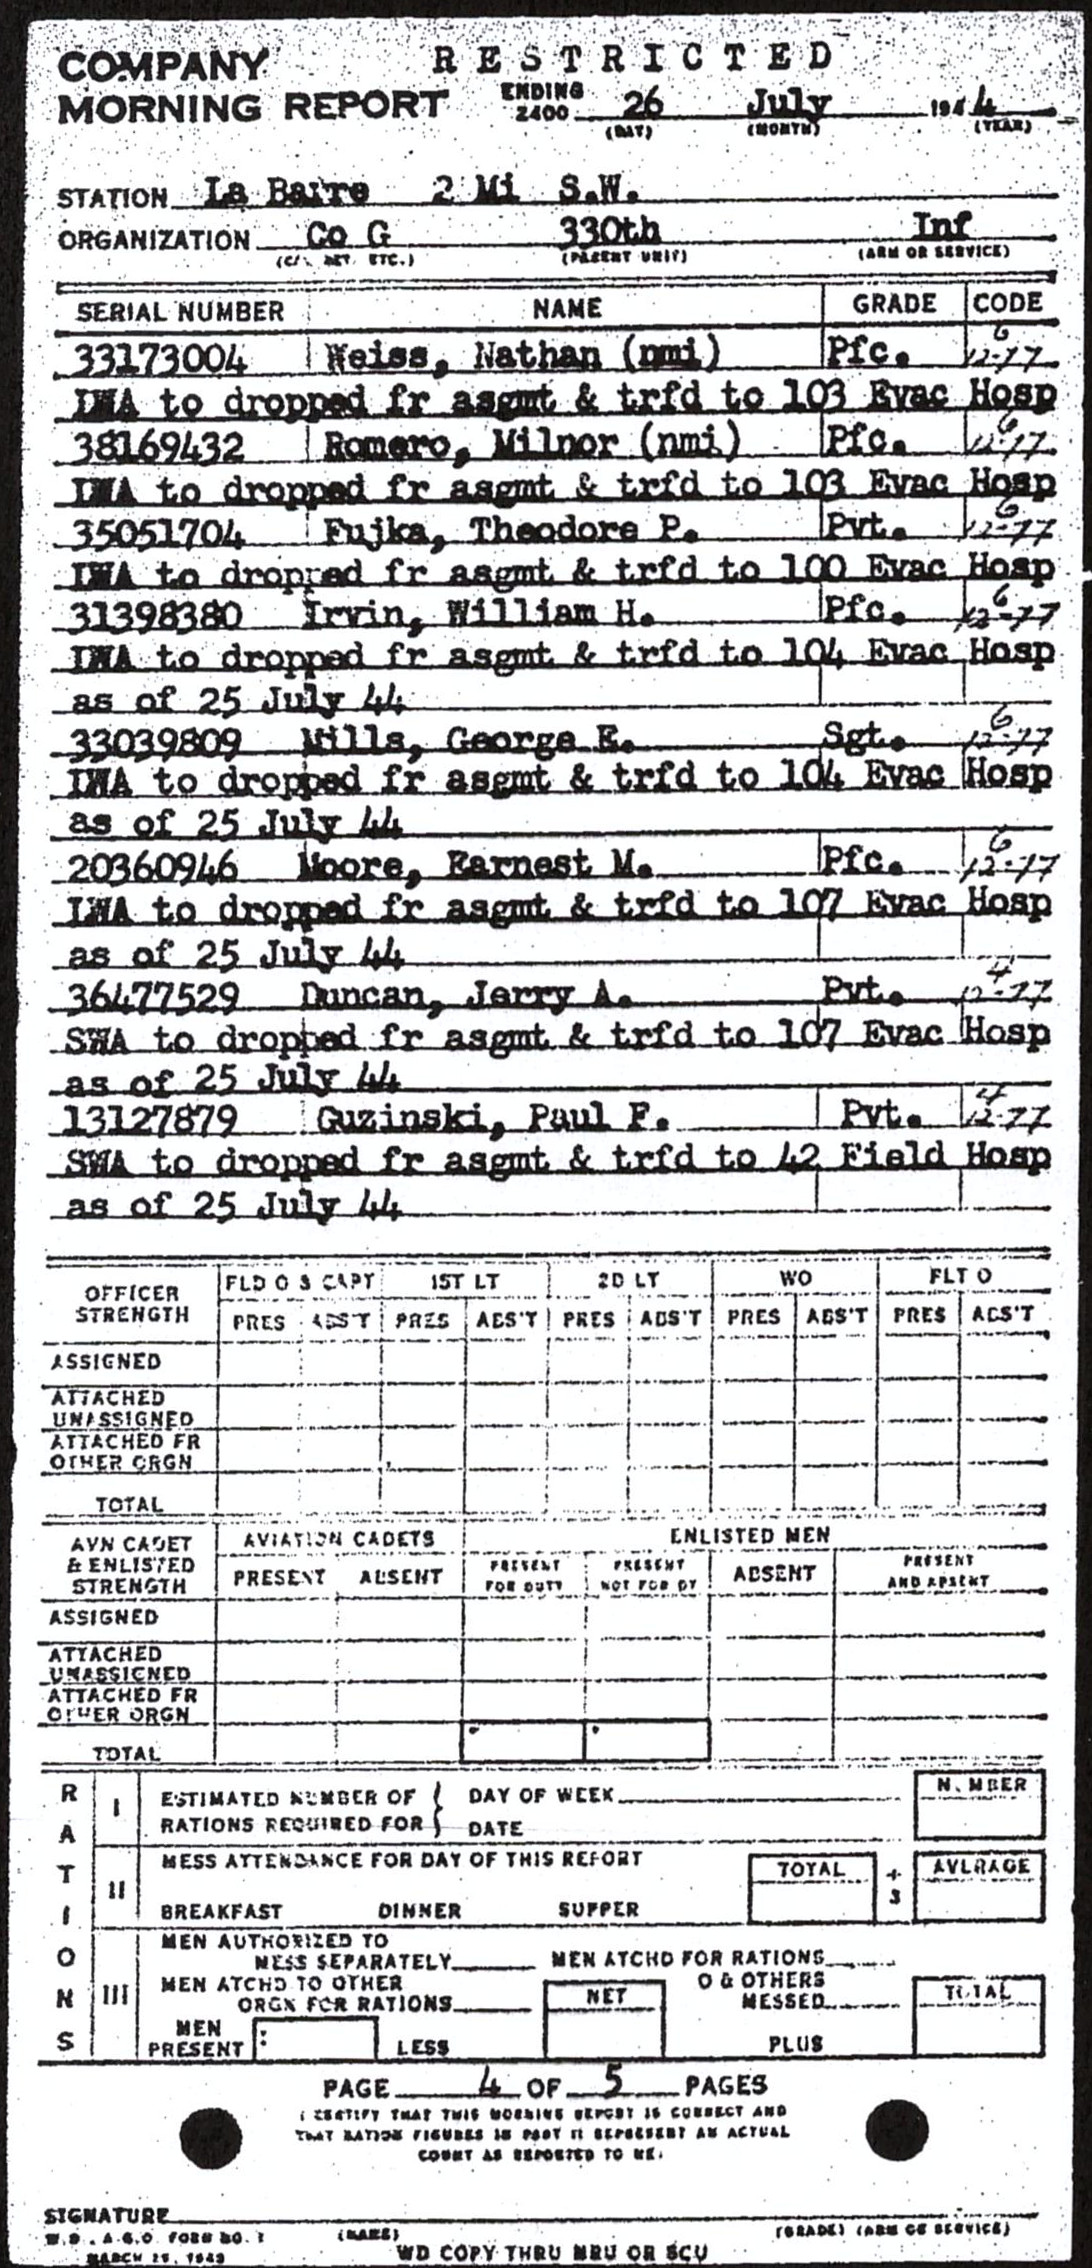 RESTRICTED
COMPANY
MORNING REPORT ENDING 2400 26 July 1944
(DAY) (MONTH) (YEAR)
STATION La Barre 2 Mi S.W.
ORGANIZATION Co G 330th Inf
(PARENT UNIT) (ARM OR SERVICE)
SERIAL NUMBER NAME GRADE CODE
33173004 Weiss, Nathan (nmi) Pfc. 6 12-77
LWA to dropped fr asgmt & trfd to 103 Evac Hosp
38169432 Romero, Milnor (nmi) Pfc. 6 12-77
LWA to dropped fr asgmt & trfd to 103 Evac Hosp
35051704 Fujka, Theodore P. Pvt. 6 12-77
LWA to dropped fr asgmt & trfd to 100 Evac Hosp
31398380 Irvin, William H. Pfc. 6 12-77
LWA to dropped fr asgmt & trfd to 104 Evac Hosp
as of 25 July 44
33039809 Mills, George E. Sgt. 6 12-77
LWA to dropped fr asgmt & trfd to 104 Evac Hosp
as of 25 July 44
20360946 Moore, Earnest M. Pfc. 6 12-77
LWA to dropped fr asgmt & trfd to 107 Evac Hosp
as of 25 July 44
36477529 Duncan, Jerry A. Pvt. 4 12-77
SWA to dropped fr asgmt & trfd to 107 Evac Hosp
as of 25 July 44
13127879 Guzinski, Paul F. Pvt. 4 12-77
SWA to dropped fr asgmt & trfd to 42 Field Hosp
as of 25 July 44
OFFICER STRENGTH FLD O & CAPT 1ST LT 2D LT WO FLT O
PRES ABS'T PRES ABS'T PRES ABS'T PRES ABS'T PRES ABS'T
ASSIGNED
ATTACHED
UNASSIGNED
ATTACHED FR
OTHER ORGN
TOTAL
AVN CADET & ENLISTED STRENGTH AVIATION CADETS ENLISTED MEN
PRESENT ABSENT PRESENT FOR DUTY PRESENT NOT FOR DY ABSENT PRESENT AND ABSENT
ASSIGNED
ATTACHED
UNASSIGNED
ATTACHED FR
OTHER ORGN
TOTAL
RATIONS
I ESTIMATED NUMBER OF RATIONS REQUIRED FOR DAY OF WEEK NUMBER
DATE
II MESS ATTENDANCE FOR DAY OF THIS REPORT TOTAL ÷ 3 AVERAGE
BREAKFAST DINNER SUPPER
III MEN AUTHORIZED TO
MESS SEPARATELY MEN ATCHD FOR RATIONS
MEN ATCHD TO OTHER
ORGN FOR RATIONS NET O & OTHERS MESSED TOTAL
MEN PRESENT LESS PLUS
PAGE 4 OF 5 PAGES
I CERTIFY THAT THIS MORNING REPORT IS CORRECT AND
THAT RATION FIGURES IN PART II REPRESENT AN ACTUAL
COUNT AS REPORTED TO ME.
SIGNATURE
W.D., A.G.O. FORM NO. 1 (NAME) (GRADE) (ARM OR SERVICE)
MARCH 25, 1943 WD COPY THRU MRU OR SCU